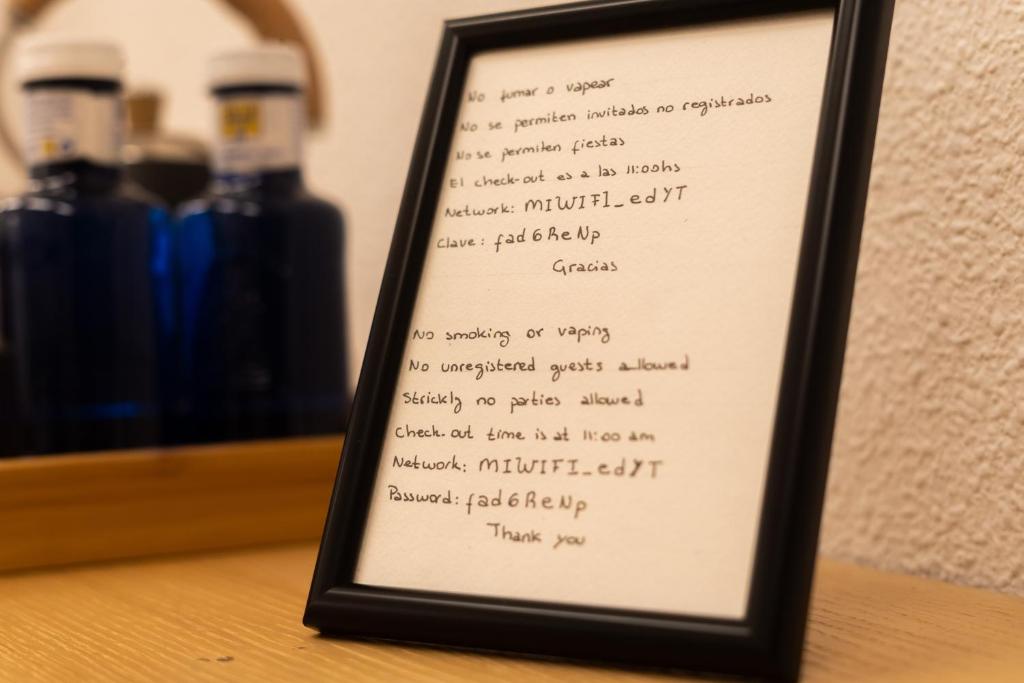 No fumar o vapear
No se permiten invitados no registrados
No se permiten fiestas
El check-out es a las 11:00hs
Network: MIWIFI_edYT
Clave: fad6ReNp
Gracias
No smoking or vaping
No unregistered guests allowed
Strickly no parties allowed
Check-out time is at 11:00 am
Network: MIWIFI_edYT
Password: fad6ReNp
Thank you